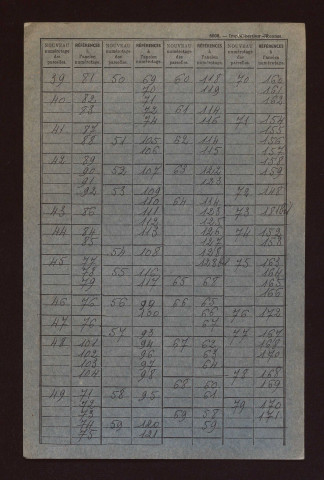 NOUVEAU numérotage des parcelles | RÉFÉRENCES à l'ancien numérotage | NOUVEAU numérotage des parcelles | RÉFÉRENCES à l'ancien numérotage | NOUVEAU numérotage des parcelles | RÉFÉRENCES à l'ancien numérotage | NOUVEAU numérotage des parcelles | RÉFÉRENCES à l'ancien numérotage
39 81 50 69 60 118 70 160
70 119 161
40 82 71 162
83 72 61 114
74 116 71 154
41 87 155
88 51 105 62 114 156
106 115 157
42 89 158
90 52 107 63 122 159
91 123
92 53 109 72 148
110 64 124
43 86 111 125 73
112 125
44 84 113 126 74 152
85 127 153
54 108 128
45 77 75 163
78 55 116 164
79 117 65 68 165
166
46 75 56 99 66 65
100 66 76 172
47 76 67
57 93 77 167
48 101 94 67 62 168
102 96 63 170
103 97 64
104 98 78 168
68 60 169
49 71 58 95 61
72 79 170
73 69 58 171
74 59 120 59
75 121